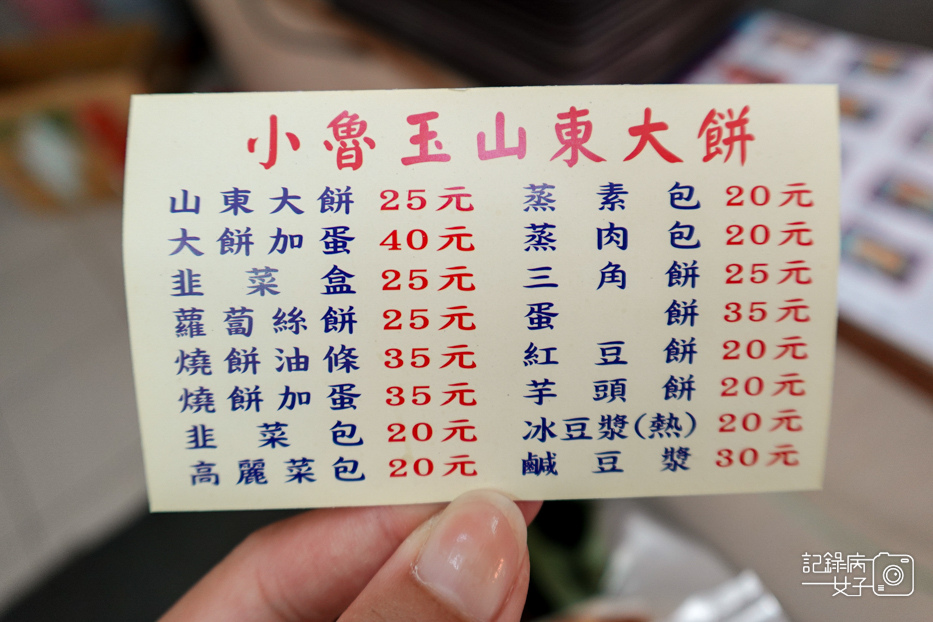 小魯玉山東大餅
山東大餅 25元
大餅加蛋 40元
韭菜盒 25元
蘿蔔絲餅 25元
燒餅油條 35元
燒餅加蛋 35元
韭菜包 20元
高麗菜包 20元
蒸素包 20元
蒸肉包 20元
三角餅 25元
蛋餅 35元
紅豆餅 20元
芋頭餅 20元
冰豆漿(熱) 20元
鹹豆漿 30元
記錄病女子